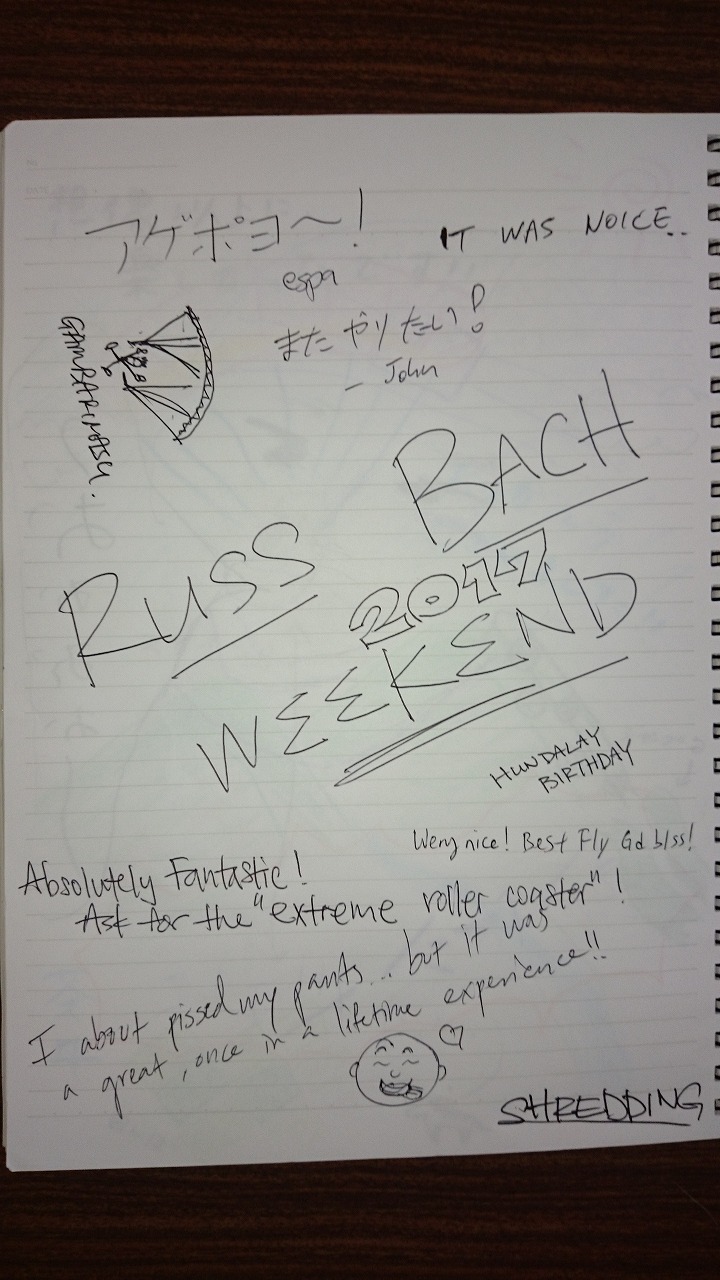 アゲポヨ〜！
IT WAS NOICE..
espa
また やりたい！
- John
GAMBARIMASU.
RUSS BACH
2017
WEEKEND
HUNDALAY
BIRTHDAY
Wery nice! Best Fly Gd blss!
Absolutely Fantastic!
Ask for the "extreme roller coaster"!
I about pissed my pants... but it was
a great, once in a lifetime experience!!
SHREDDING